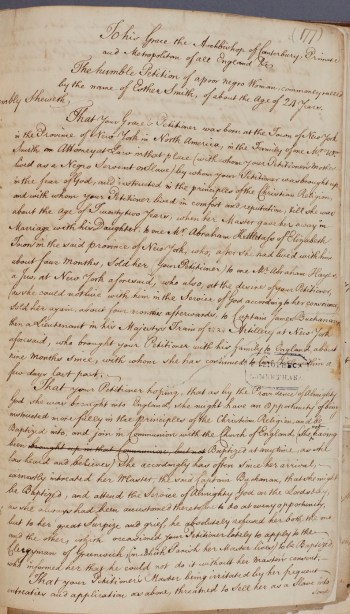 (177)
To his Grace the Archbishop of Canterbury, Primate
and Metropolitan of all England &c
The humble Petition of a poor Negro Woman commonly called
by the name of Esther Smith, of about the Age of 24 Years
Sheweth,
That your Grace's Petitioner was born at the Town of New York
in the Province of New York in North America, in the Family of one Mr Wm
Smith an Attorney at Law in that place (with whom your Petitioner's Mother
lived as a Negro Servant or Slave) by whom your Petitioner was brought up
in the fear of God, and instructed in the principles of the Christian Religion,
and with whom your Petitioner lived in comfort and reputation, till she was
about the age of Twenty two Years, when her Master gave her away in
Marriage with his Daughter, to one Mr Abraham of Elizabeth
Town in the said province of New York, who, after she had lived with him
about four Months, sold her your Petitioner, to one Mr Abraham Hays
a Jew, at New York aforesaid, who also, at the desire of your Petitioner,
(as she could not live with him in the Service of God according to her conscience)
sold her again about four months afterwards to Captain James Buchanan
then a Lieutenant in his Majestys Train of Artillery at New York
aforesaid, who brought your Petitioner with his family to England about
nine Months since, with whom she has continued to
few days last past.
That your Petitioner hoping, that as by the Providence of Almighty
God she was brought into England, she might have an Opportunity of being
instructed more fully in the principles of the Christian Religion, and be
Baptized into and join in Communion with the Church of England, she having
been brought up in that Communion, but not Baptized at any time, as she
has heard and believes, She accordingly has often since her arrival,
earnestly intreated her Master, the said Captain Buchanan, that she might
be Baptized, and attend the Service of Almighty God on the Lords day,
as she always had been accustomed theretofore to do at every opportunity,
but to her great Surprize and grief, he absolutely refused her both the one
and the other, which occasioned your Petitioner lately to apply to the
Clergyman of Greenwich (in which Parish her Master lives) to be Baptized
who informed her that he could not do it without her masters consent.
That your Petitioner's Master being irritated by her frequent
intreaties and application as above, threatned to sell her as a Slave into
some